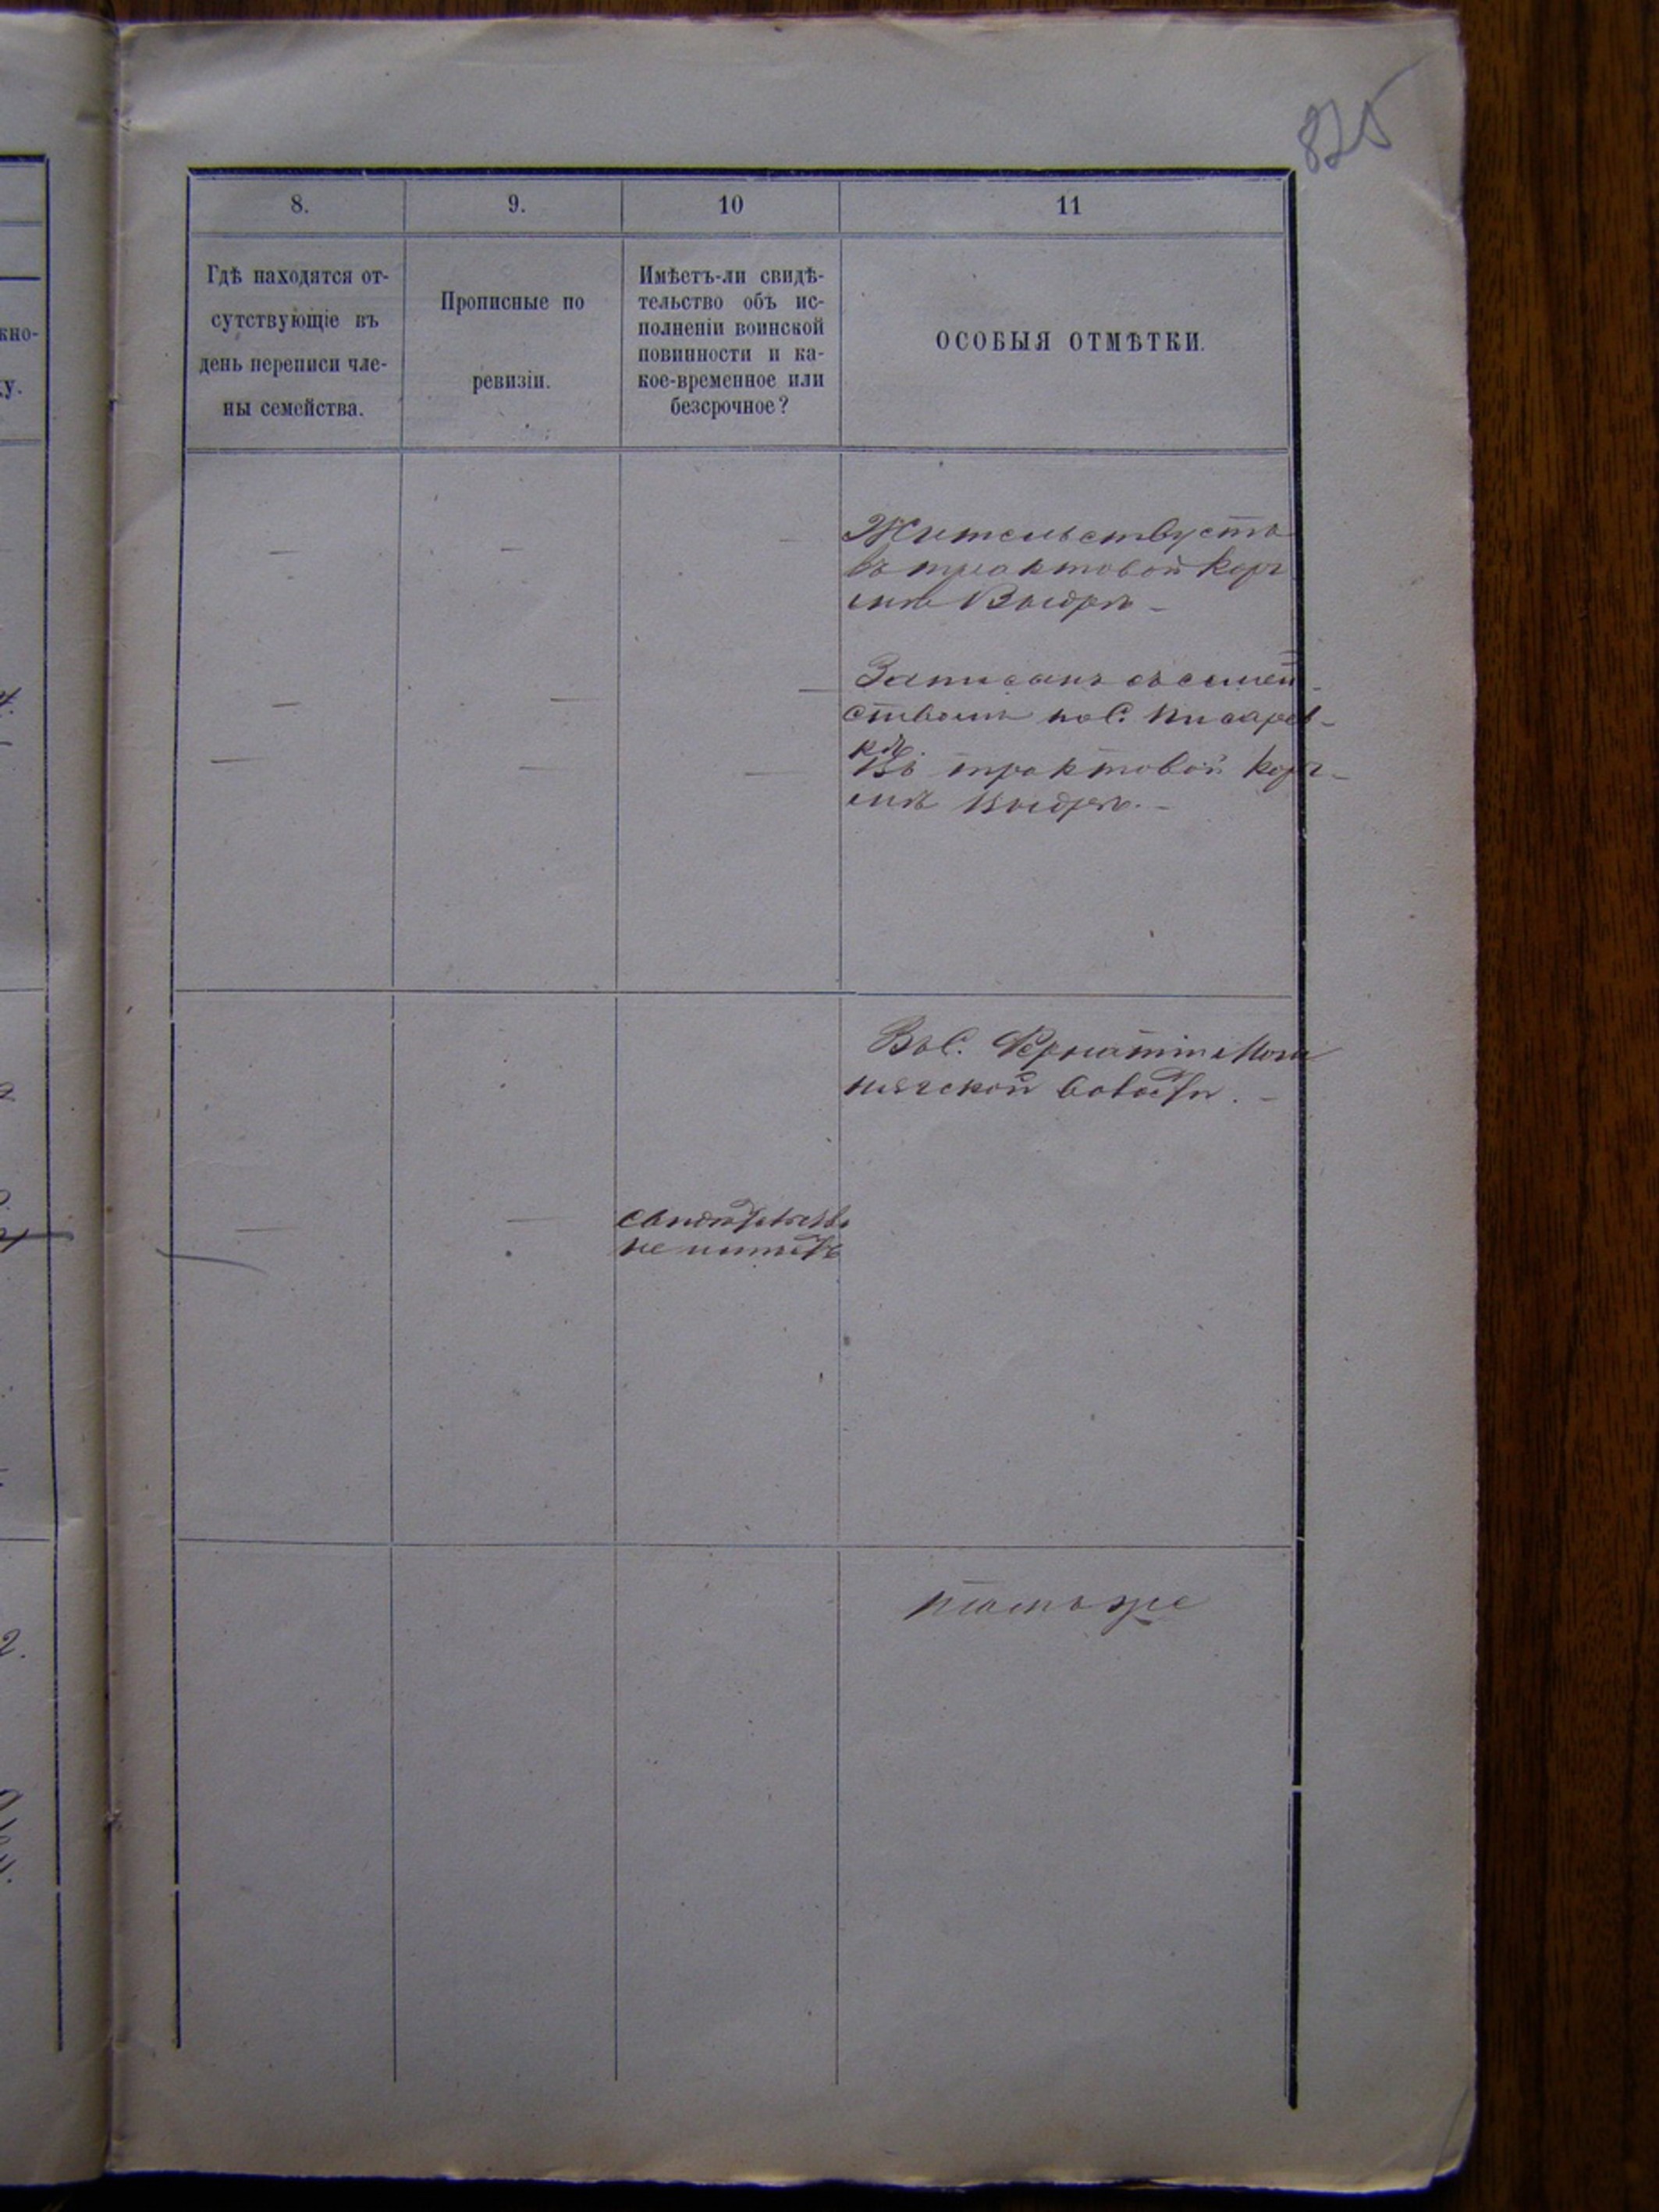 825
8.
9.
10
11
Гдѣ находятся от-
сутствующіе въ
день переписи чле-
ны семейства.
Прописные по
ревизіи.
Имѣетъ-ли свидѣ-
тельство объ ис-
полненіи воинской
повинности и ка-
кое-временное или
безсрочное?
ОСОБЫЯ ОТМѢТКИ.
кно-
у.
Жительствуетъ
въ трактовой Корч
мѣ Выдрѣ –
Записанъ съ семей-
ствомъ по С. Писарев-
кѣ.
Въ трактовой Корч-
мѣ Выдрѣ. –
Въ С.
волости. –
свидѣтельства
не имѣетъ
тамъ же
2.